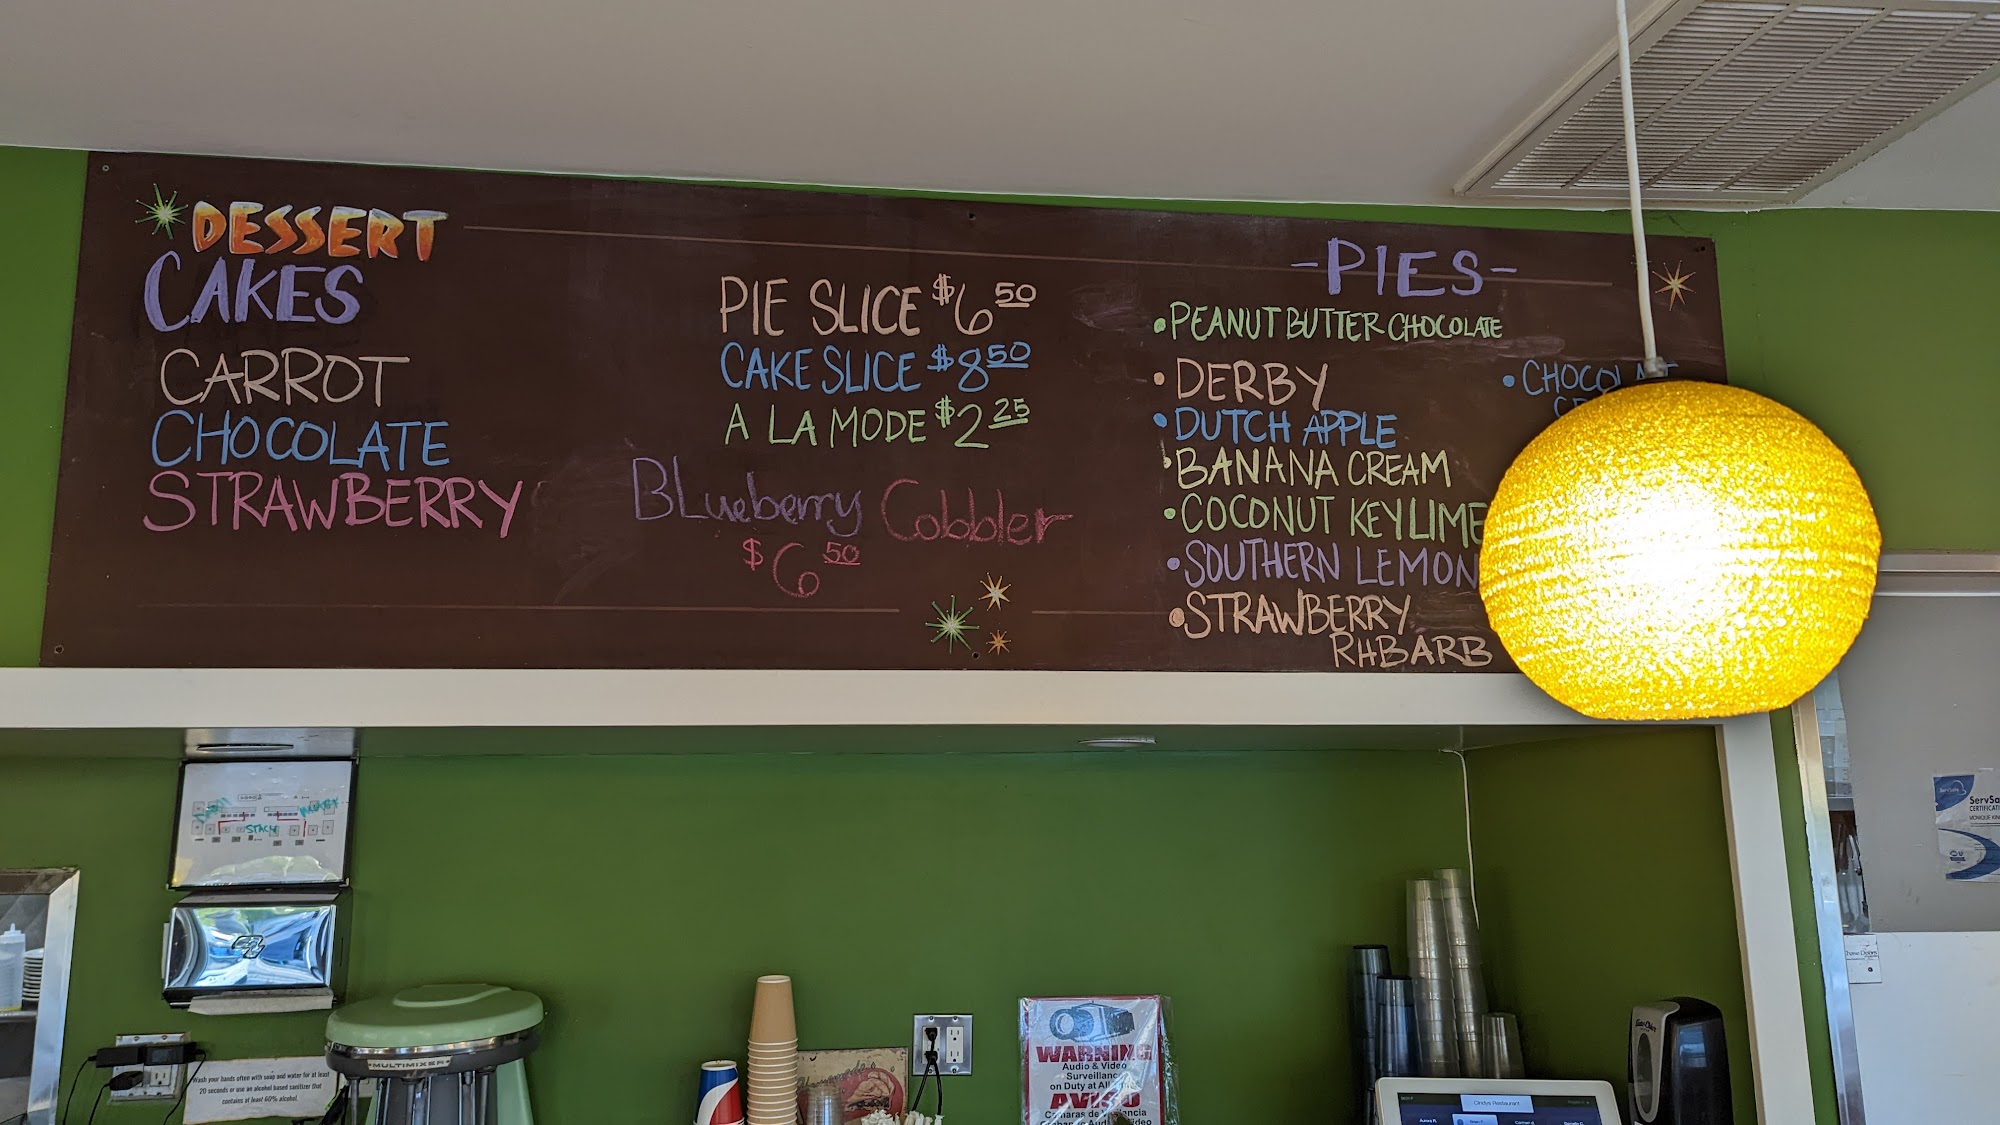 DESSERT
CAKES
CARROT
CHOCOLATE
STRAWBERRY
PIE SLICE $6 50
CAKE SLICE $8 50
A LA MODE $2 25
BLueberry Cobbler
$6 50
-PIES-
• PEANUT BUTTER CHOCOLATE
• DERBY
• DUTCH APPLE
• BANANA CREAM
• COCONUT KEY LIME
• SOUTHERN LEMON
• STRAWBERRY
RHBARB
STACY
MULTIMIXER
Wash your hands often with soap and water for at least
20 seconds or use an alcohol based sanitizer that
contains at least 60% alcohol.
WARNING
Audio & Video
Surveillance
on Duty at All
Cindys Restaurant
ServSa
CERTIFICAT